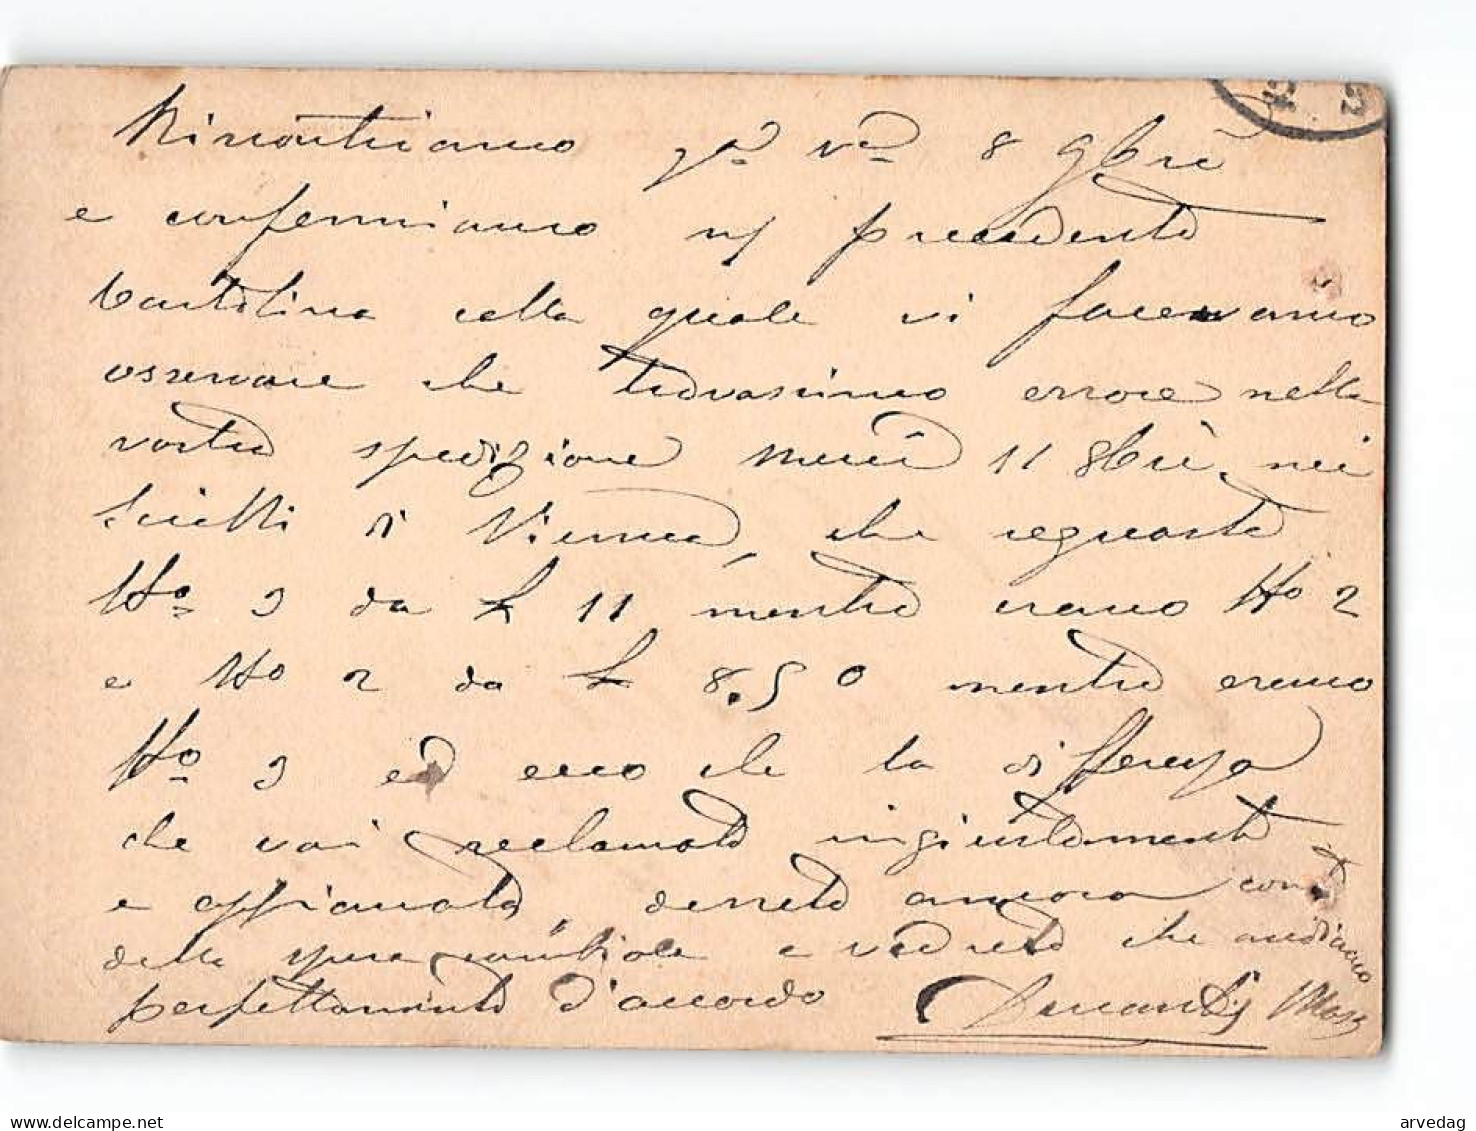 Riscontriamo pa va 8 9bre
e confermiamo n/ precedente
Cartolina colla quale vi facevamo
osservare che trovassimo errore nella
vostra spedizione merci 11 8bre nei
Scialli di Vienna, che
No 3 da £ 11 mentre erano No 2
e No 2 da £ 8.50 mentre erano
No 3 ed ecco che la differenza
che voi reclamate ingiustamente
e appianata, derete ancora conto
della spesa cambiale e vedrete che andiamo
perfettamente d'accordo
arvedag
© delcampe.net